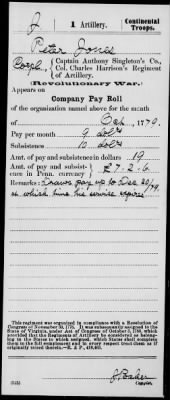 J | 1 Artillery. | Continental Troops.
Peter Jones
Corpl., Captain Anthony Singleton's Co.,
Col. Charles Harrison's Regiment
of Artillery.
(Revolutionary War.)
Appears on
Company Pay Roll
of the organization named above for the month
of Oct, 1779.
Pay per month 9 dolls
Subsistence 10 dolls
Amt. of pay and subsistence in dollars 19
Amt. of pay and subsistence in Penn. currency £7.2.6
Remarks: Draws pay up to Dec 20/79,
at which time his service expires
This regiment was organized in compliance with a Resolution of
Congress of November 30, 1776. It was subsequently assigned to the
State of Virginia, under Act of Congress of October 3, 1780, which
provided that the Regiments of Artillery be considered as belonging
to the States to which assigned, which States shall complete
them to the full complement and in every respect treat them as if
originally raised therein.—R. & P., 436,461.
Copyist.